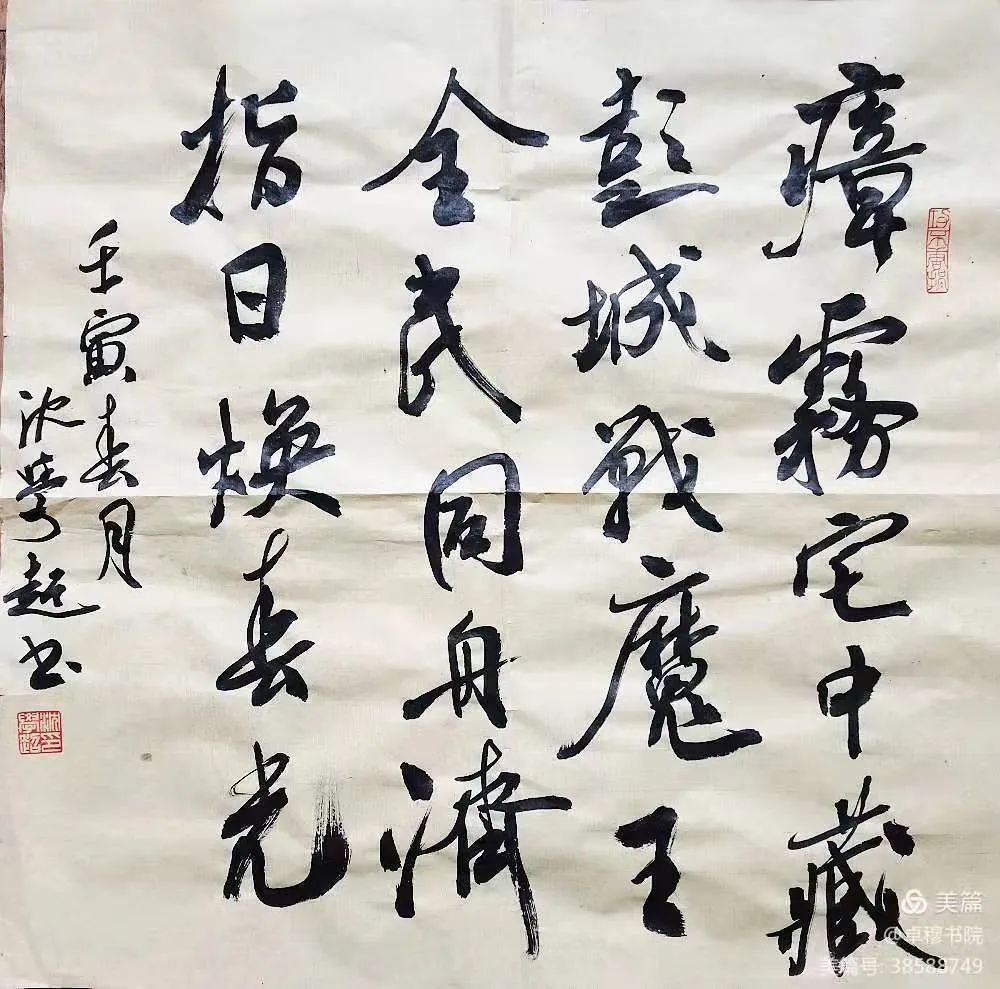 瘴霧宅中藏
彭城戰魔王
全民同舟濟
指日焕春光
壬寅春月
沈學超书
沈學超印
美篇
@卓穆书院
美篇号: 38588749